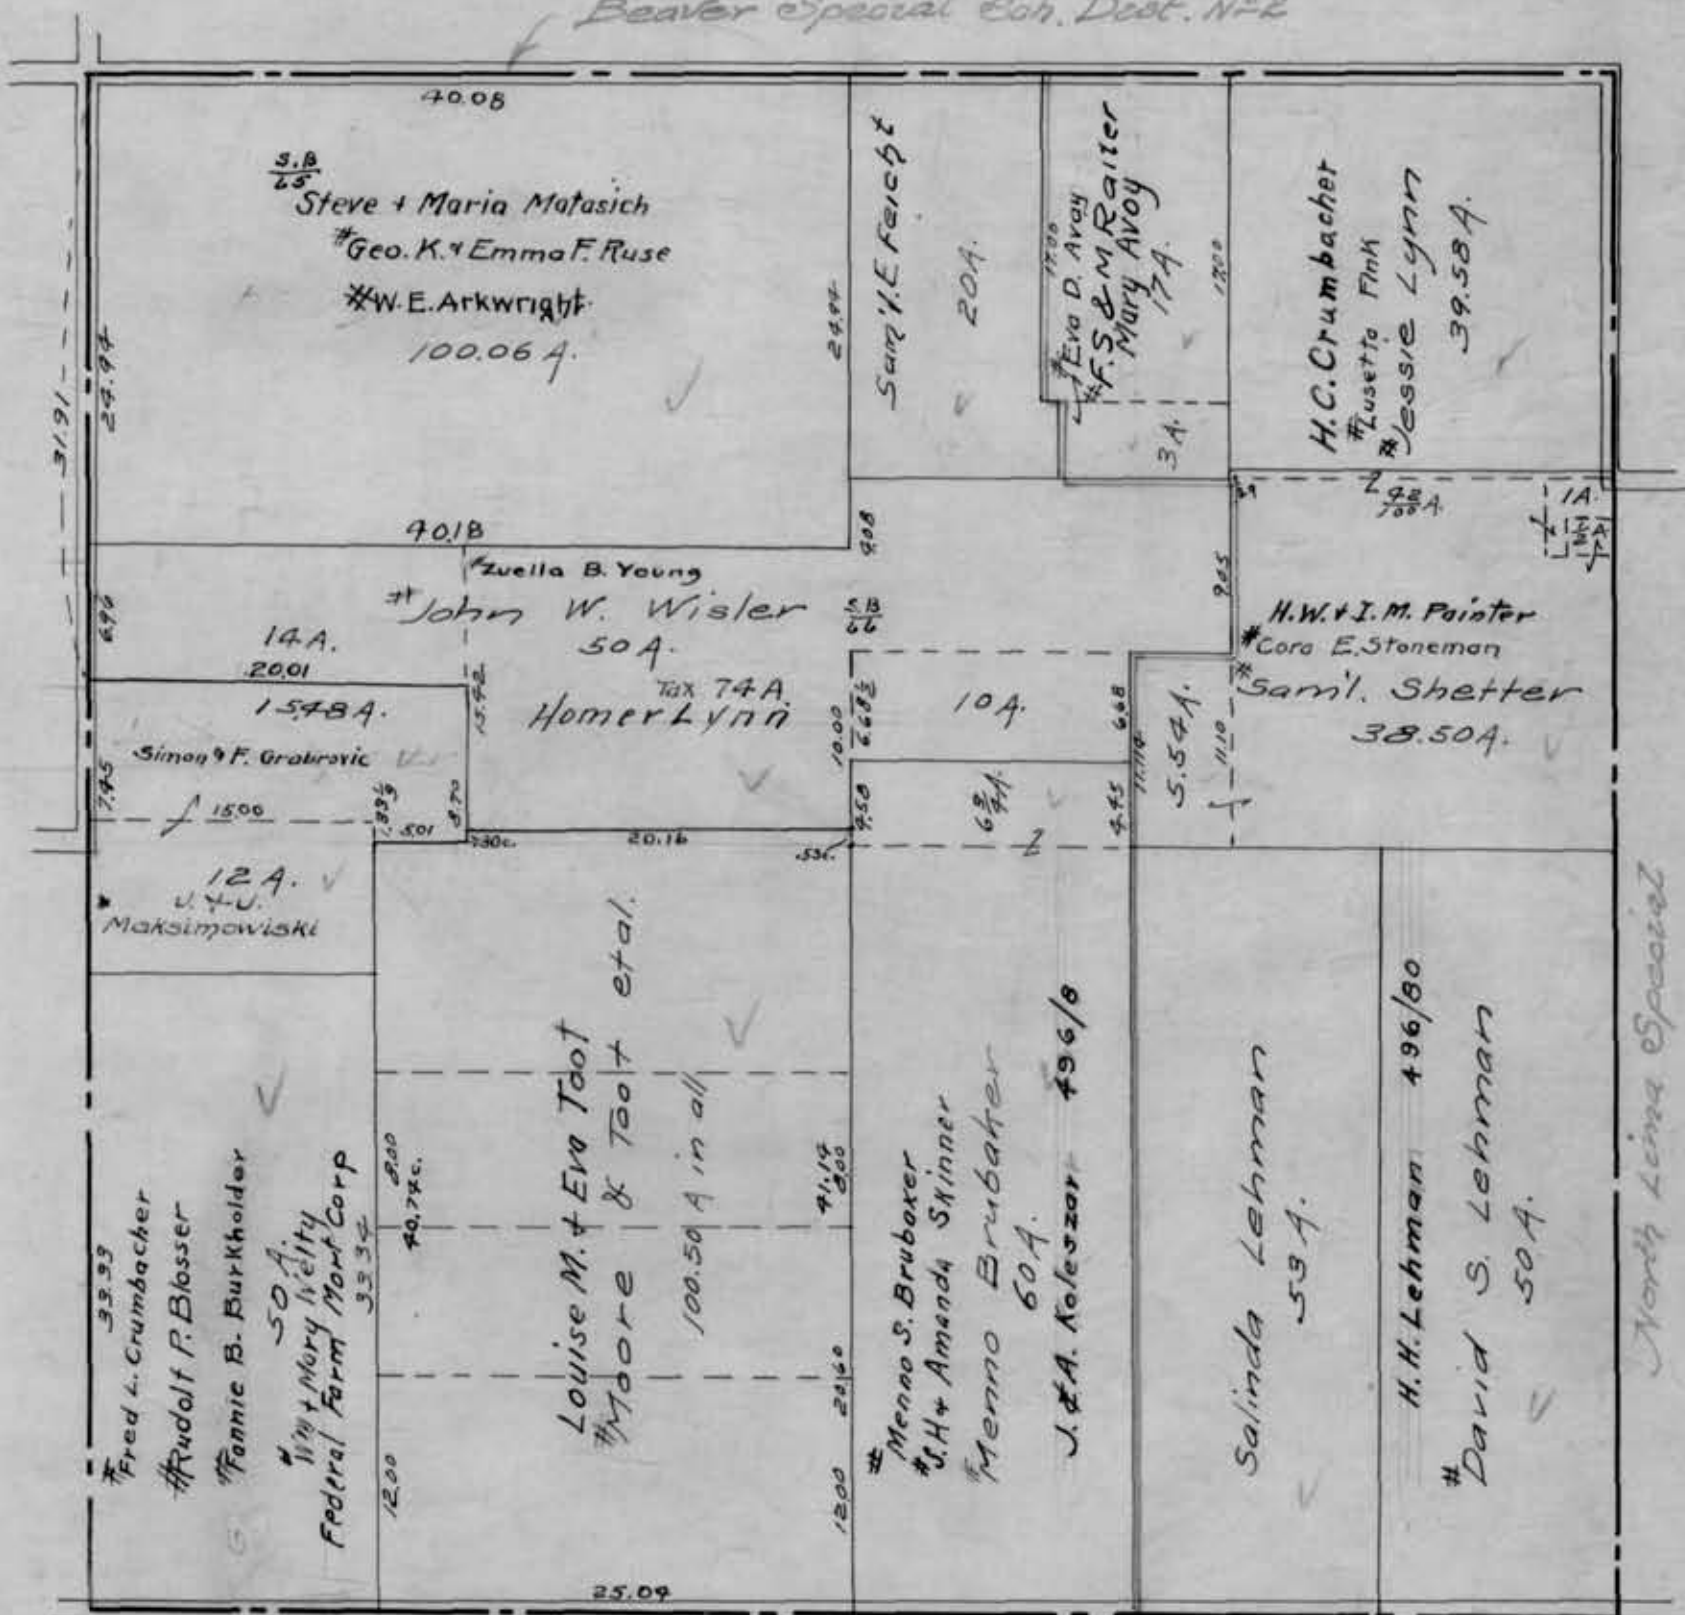 Beaver Special Sch. Dist. No 2
40.08
S.B
65
Steve + Maria Matasich
#Geo. K. & Emma F. Ruse
#W. E. Arkwright
100.06 A.
31.91
24.94
24.94
Sam'l. E. Feicht
20A.
17.00
#Eva D. Avoy
#F. S & M Railer
Mary Avoy
17A.
17.00
3 A.
H. C. Crumbacher
#Lusetta Fink
#Jessie Lynn
39.58 A.
40.18
9.08
#Zuella B. Young
#John W. Wisler
50 A.
Tax 74 A.
Homer Lynn
S.B
66
6.96
14 A.
20.01
15.48 A.
Simon & F. Grabrovic
7.45
15.00
1.33⅓
5.01
8.70
15.42
.30c.
20.16
.53c.
10.00
6.68½
4.58
10 A.
6.68
6¾A.
4.45
11.14
5.54 A.
11.10
9.05
42/100 A.
1 A.
H. W. & I. M. Painter
#Cora E. Stoneman
#Sam'l. Shetter
38.50 A.
12 A.
J. & J.
Maksimowiski
33.33
#Fred L. Crumbacher
#Rudolf P. Blosser
#Fannie B. Burkholder
50 A.
#Wm + Mary Welty
Federal Farm Mort Corp
33.34
8.00
40.74 c.
12.00
Louise M. + Eva Toot
#Moore & Toot etal.
100.50 A in all
41.14
8.00
20.60
12.00
25.04
#Menno S. Brubaker
#S. H + Amanda Skinner
#Menno Brubaker
60 A.
J. & A. Koleszar 496/8
Salinda Lehman
53 A.
H. H. Lehman 496/80
#David S. Lehman
50 A.
North Lima Special